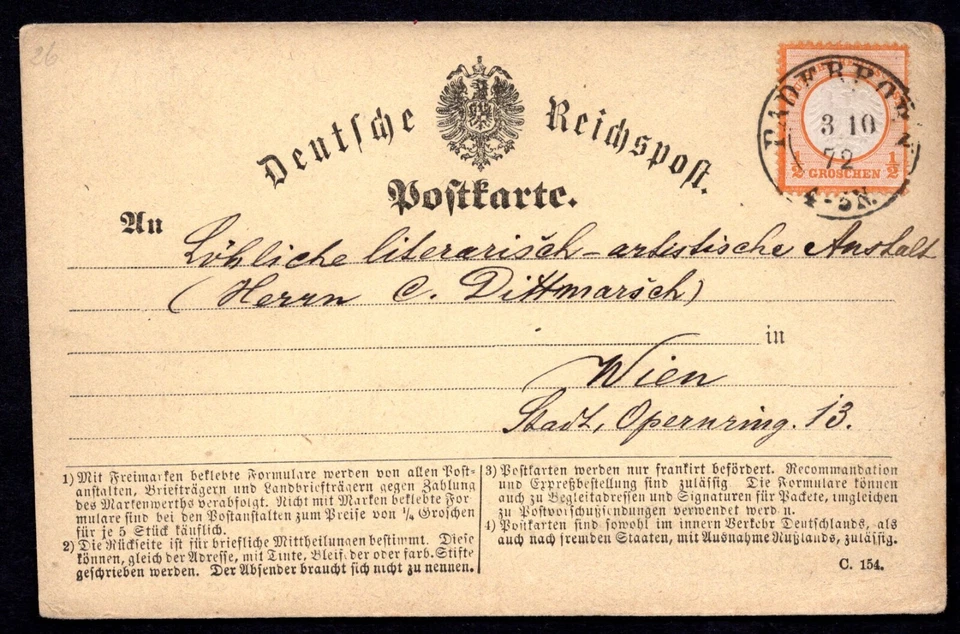 26
Deutſche Reichspoſt.
Poſtkarte.
PADERBORN
3 10
72
4-5N.
½ GROSCHEN ½
An Löbliche literarisch-artistische Anstalt
(Herrn C. Dittmarsch)
in
Wien
Stadt, Opernring. 13.
1) Mit Freimarken beklebte Formulare werden von allen Poſt-
anſtalten, Briefträgern und Landbriefträgern gegen Zahlung
des Markenwerths verabfolgt. Nicht mit Marken beklebte For-
mulare ſind bei den Poſtanſtalten zum Preiſe von ¼ Groſchen
für je 5 Stück käuflich.
2) Die Rückſeite iſt für briefliche Mittheilungen beſtimmt. Dieſe
können, gleich der Adreſſe, mit Tinte, Bleiſeder oder farb. Stifte
geſchrieben werden. Der Abſender braucht ſich nicht zu nennen.
3) Poſtkarten werden nur frankirt befördert. Recommandation
und Expreßbeſtellung ſind zuläſſig. Die Formulare können
auch zu Begleitadreſſen und Signaturen für Packete, imgleichen
zu Poſtvorſchußſendungen verwendet werd n.
4) Poſtkarten ſind ſowohl im innern Verkehr Deutſchlands, als
auch nach fremden Staaten, mit Ausnahme Rußlands, zuläſſig.
C. 154.